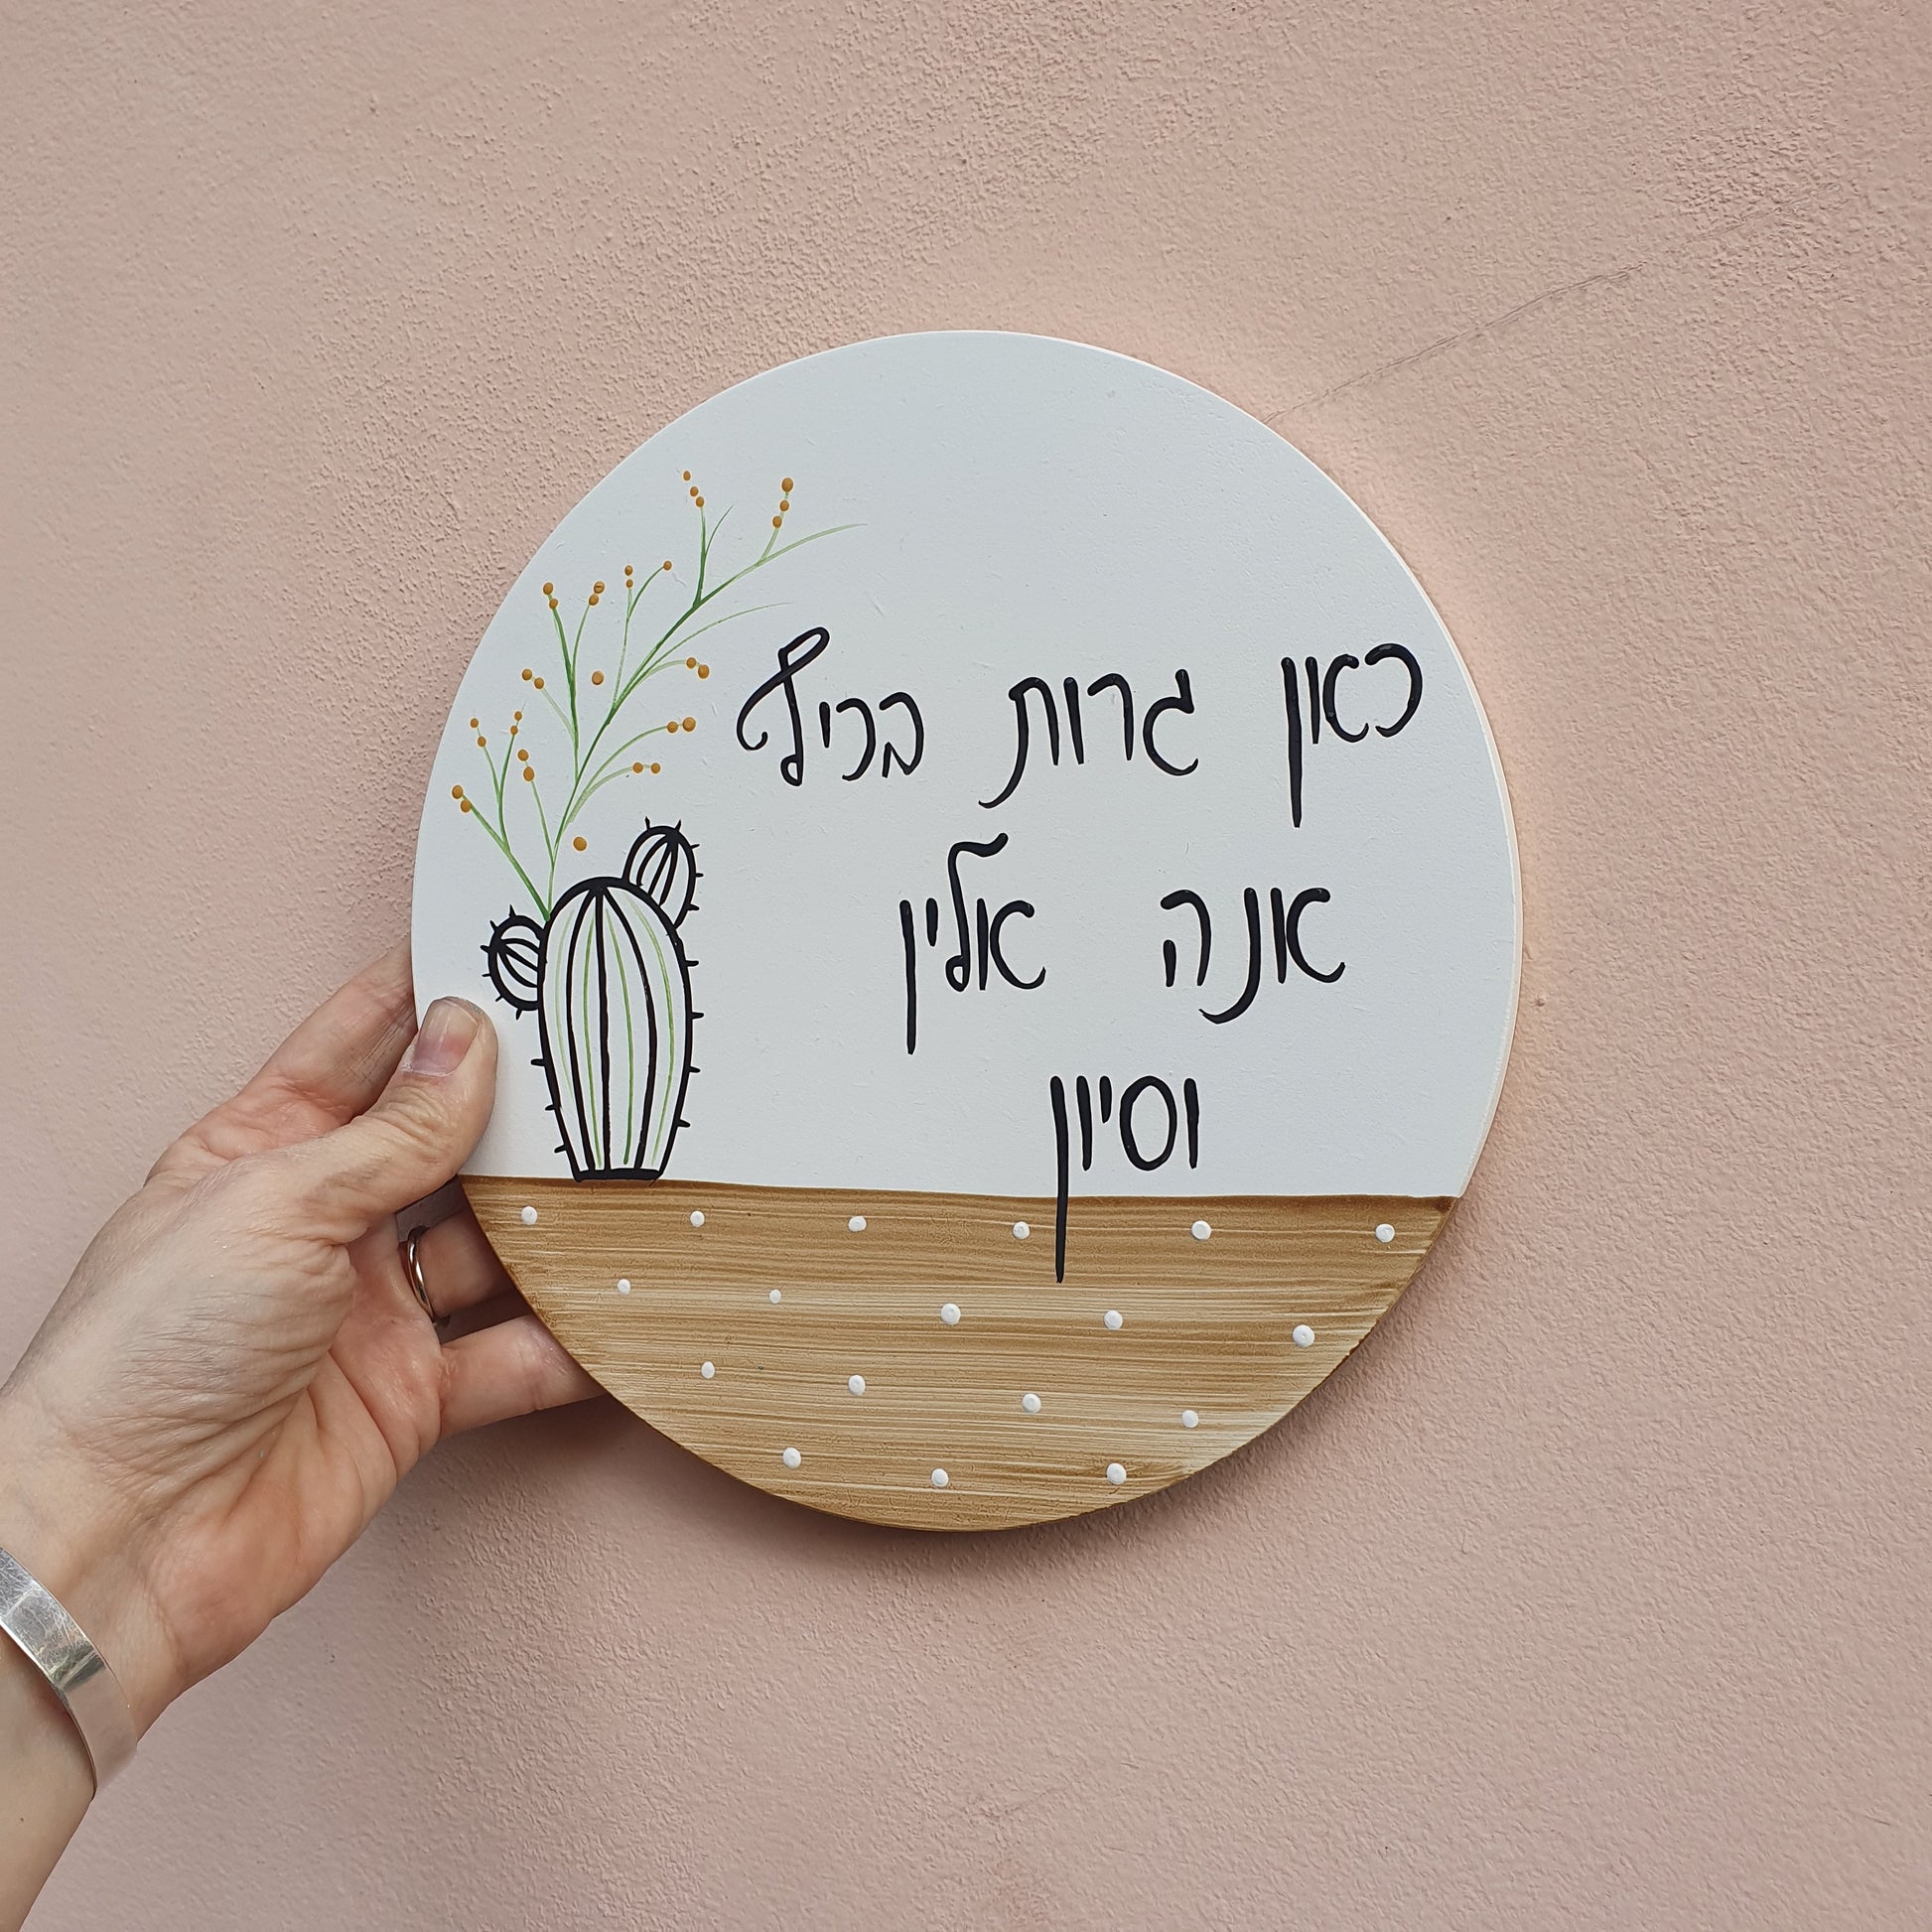 כאן גרות בכיף
אנה אלין
וסיון